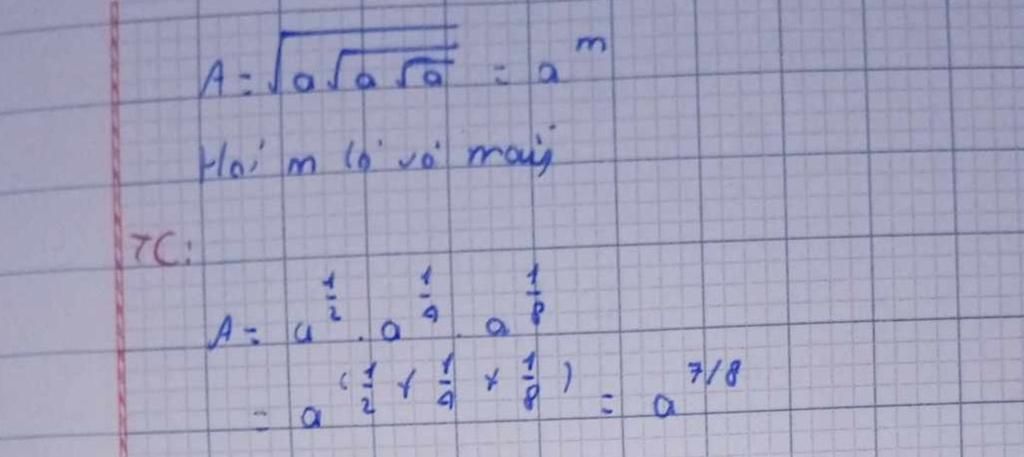 A = √a√a√a = a^m
Hỏi m là
TC:
A = a^1/2 . a^1/4 . a^1/8
= a^(1/2 + 1/4 + 1/8) = a^7/8